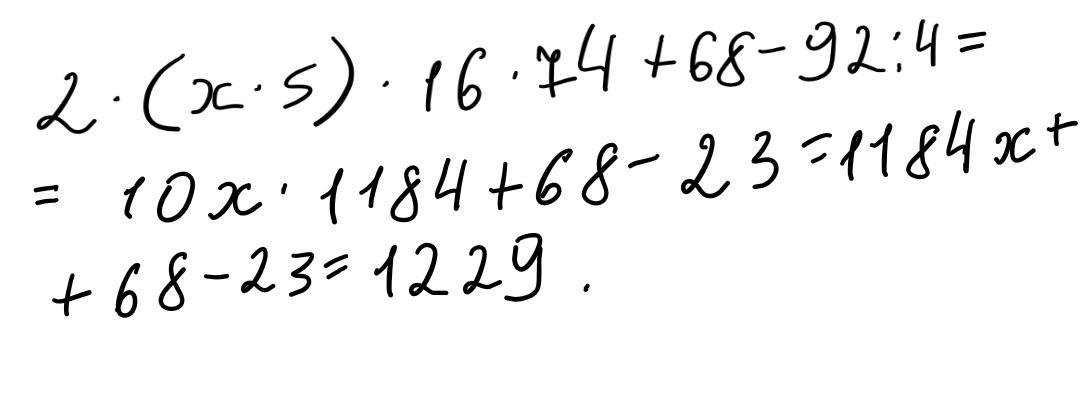 2 · (x · 5) · 16 · 74 + 68 - 92 : 4 =
= 10x · 1184 + 68 - 23 = 1184x +
+ 68 - 23 = 1229 .